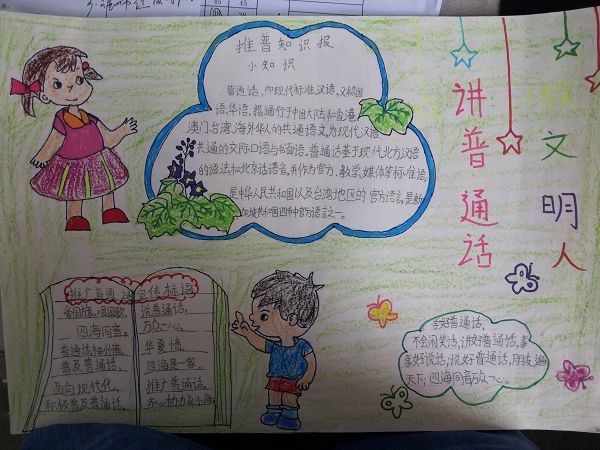 推普知识报
小知识
普通话,即现代标准汉语,又称国
语、华语,指通行于中国大陆和香港、
澳门、台湾、海外华人的共通语文为现代汉语
共通的交际口语与书面语。普通话基于现代北方汉语
的语法和北京话语音,并作为官方、教学、媒体等标准语,
是中华人民共和国以及台湾地区的官方语言,是新
加坡共和国四种官方语言之一。
讲普通话
做文明人
推广普通话宣传标语
爱国旗,唱国歌
四海同音。
普及普通话。
面向现代化,
积极普及普通话。
说普通话,
万众一心。
华夏情,
四海是一家。
推广普通话,
齐心协力奔小康。
学好普通话,
不会闹笑话,讲好普通话,事
事好说话,说好普通话,朋友遍
天下,四海同音万众一心。